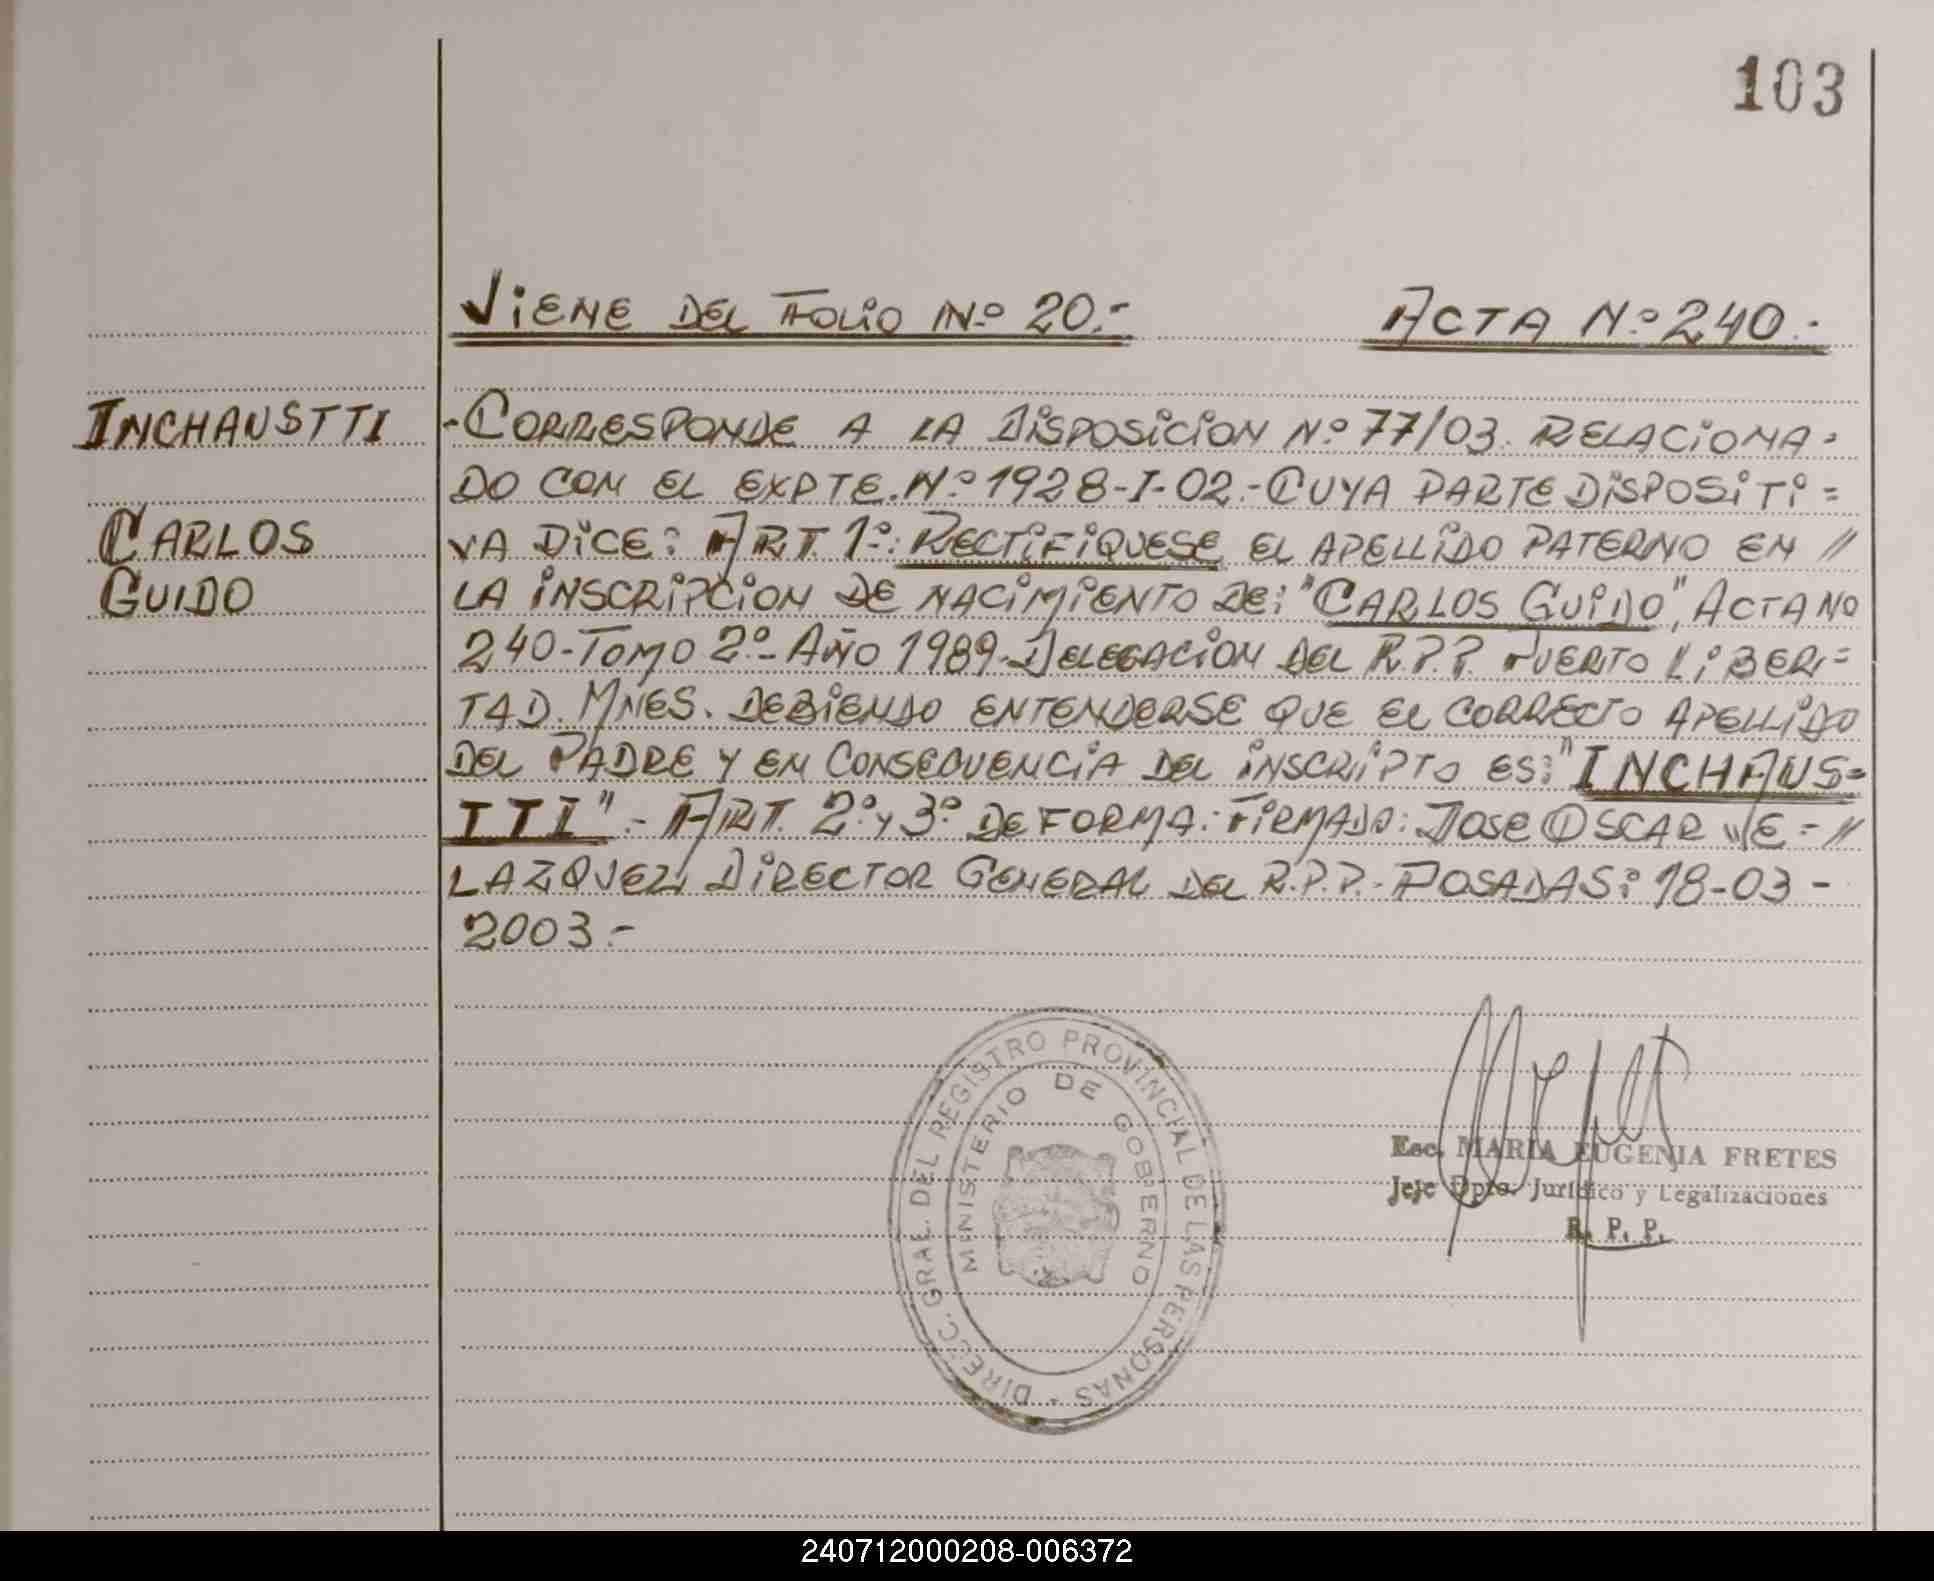 103
VIENE DEL FOLIO Nº 20.-
ACTA Nº 240.-
INCHAUSTTI
CARLOS
GUIDO
-CORRESPONDE A LA DISPOSICION Nº 77/03. RELACIONA-
DO CON EL EXPTE. Nº 1928-I-02.- CUYA PARTE DISPOSITI=
VA DICE: ART. 1º: RECTIFIQUESE EL APELLIDO PATERNO EN //
LA INSCRIPCION DE NACIMIENTO DE: "CARLOS GUIDO", ACTA Nº
240-TOMO 2º- AÑO 1989- DELEGACION DEL R.P.P. PUERTO LIBER=
TAD. MNES. DEBIENDO ENTENDERSE QUE EL CORRECTO APELLIDO
DEL PADRE Y EN CONSECUENCIA DEL INSCRIPTO ES: "INCHAUS=
TTI".- ART. 2º Y 3º DE FORMA: FIRMADO: JOSE OSCAR VE-//
LAZQUEZ, DIRECTOR GENERAL DEL R.P.P.- POSADAS: 18-03-
2003.-
DIREC. GRAL. DEL REGISTRO PROVINCIAL DE LAS PERSONAS -
MINISTERIO DE GOBIERNO
Esc. MARIA EUGENIA FRETES
Jefe Dpto. Jurídico y Legalizaciones
R. P. P.
240712000208-006372